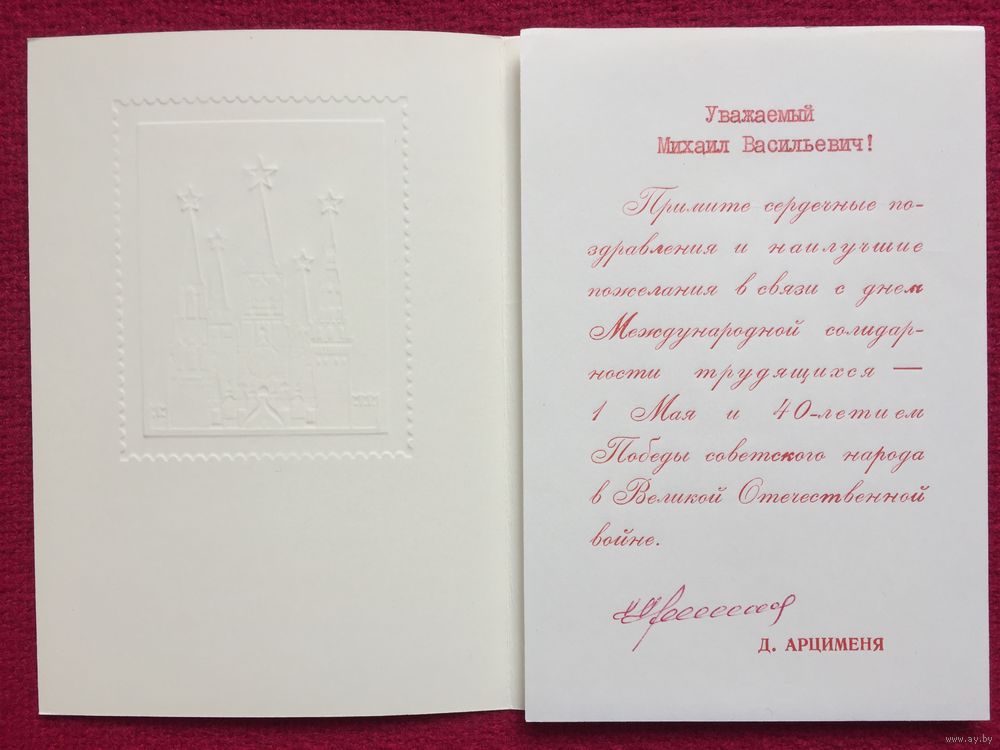 Уважаемый
Михаил Васильевич!
Примите сердечные по-
здравления и наилучшие
пожелания в связи с днем
Международной солидар-
ности трудящихся —
1 Мая и 40-летием
Победы советского народа
в Великой Отечественной
войне.
Д. АРЦИМЕНЯ
www.ay.by